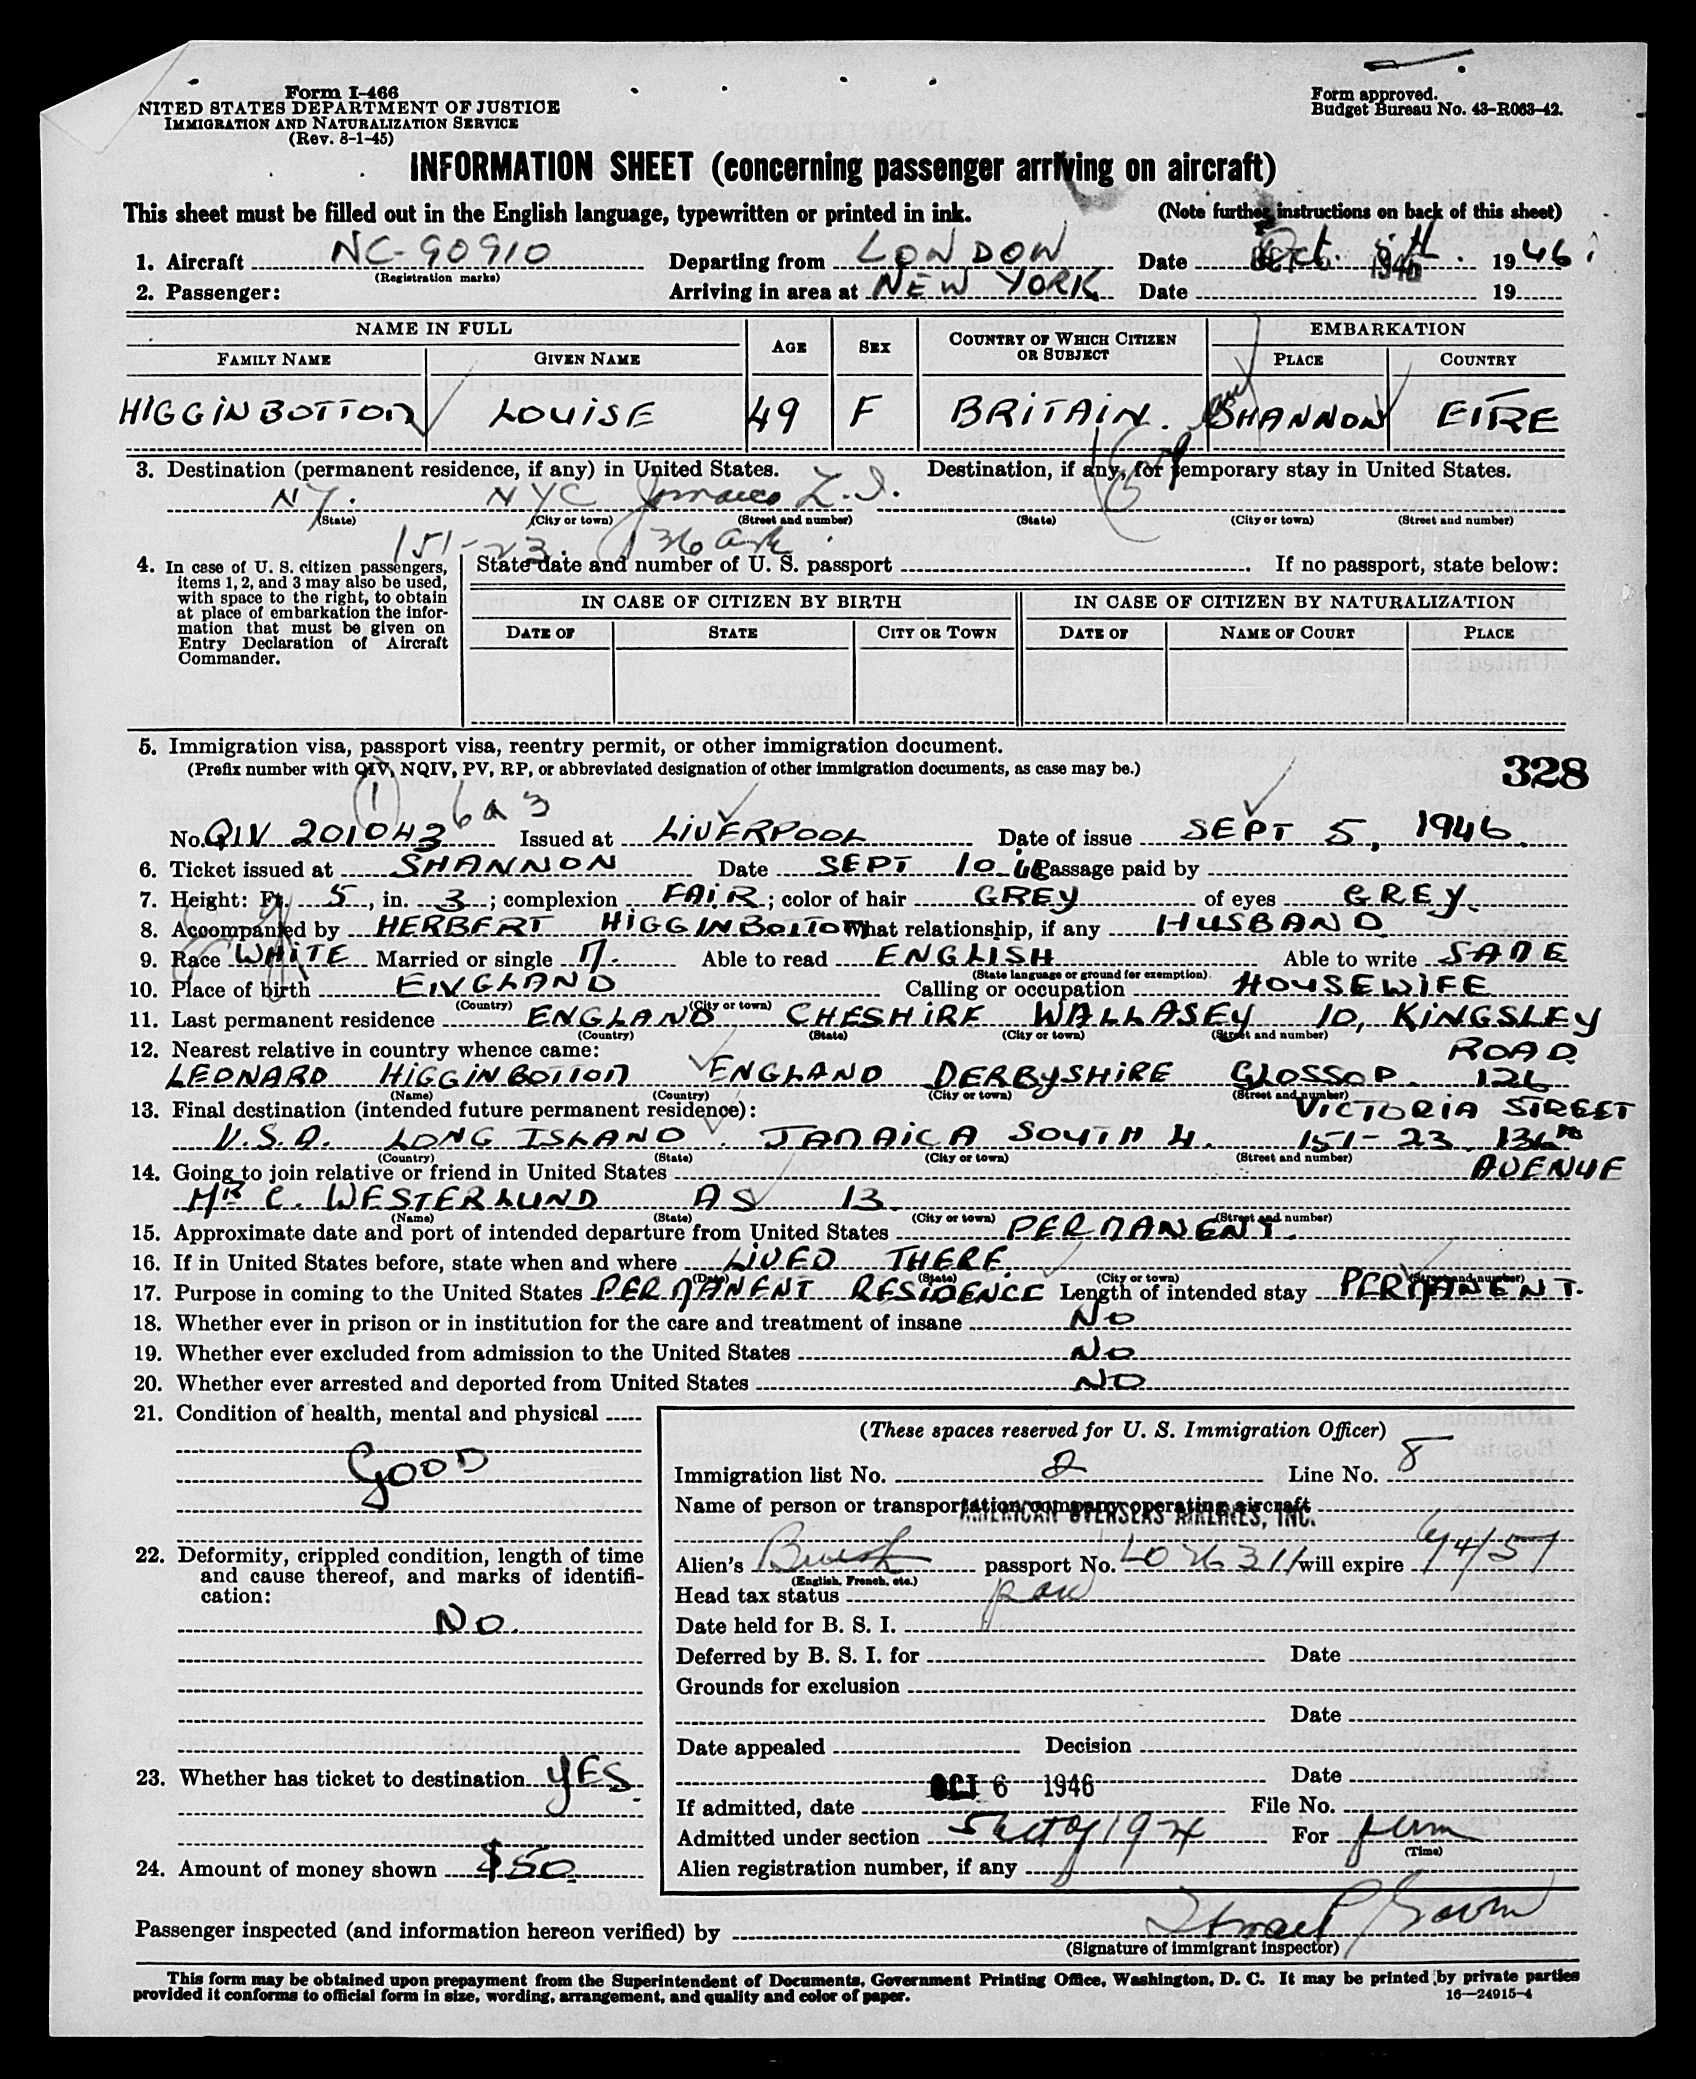 Form I-466
NITED STATES DEPARTMENT OF JUSTICE
IMMIGRATION AND NATURALIZATION SERVICE
(Rev. 8-1-45)
Form approved.
Budget Bureau No. 43-R063-42.
INFORMATION SHEET (concerning passenger arriving on aircraft)
This sheet must be filled out in the English language, typewritten or printed in ink.
(Note further instructions on back of this sheet)
1. Aircraft NC-90910 Departing from LONDON Date Oct. 1946
(Registration marks)
2. Passenger: Arriving in area at NEW YORK Date 19
NAME IN FULL AGE SEX COUNTRY OF WHICH CITIZEN OR SUBJECT EMBARKATION
FAMILY NAME GIVEN NAME PLACE COUNTRY
HIGGINBOTTOM LOUISE 49 F BRITAIN. SHANNON EIRE
3. Destination (permanent residence, if any) in United States. Destination, if any, for temporary stay in United States.
NY. NYC Jamaica L.I.
(State) (City or town) (Street and number) (State) (City or town) (Street and number)
151-23. 136 
4. In case of U. S. citizen passengers, items 1, 2, and 3 may also be used, with space to the right, to obtain at place of embarkation the information that must be given on Entry Declaration of Aircraft Commander.
State date and number of U. S. passport If no passport, state below:
IN CASE OF CITIZEN BY BIRTH IN CASE OF CITIZEN BY NATURALIZATION
DATE OF STATE CITY OR TOWN DATE OF NAME OF COURT PLACE
5. Immigration visa, passport visa, reentry permit, or other immigration document.
(Prefix number with QIV, NQIV, PV, RP, or abbreviated designation of other immigration documents, as case may be.)
328
(1) 6 a 3
No. QIV 201043 Issued at LIVERPOOL Date of issue SEPT 5, 1946.
6. Ticket issued at SHANNON Date SEPT 10 46 Passage paid by
7. Height: Ft. 5, in. 3; complexion FAIR; color of hair GREY of eyes GREY.
8. Accompanied by HERBERT HIGGINBOTTOM What relationship, if any HUSBAND
9. Race WHITE Married or single M. Able to read ENGLISH Able to write SAME
(State language or ground for exemption)
10. Place of birth ENGLAND Calling or occupation HOUSEWIFE
(Country) (City or town)
11. Last permanent residence ENGLAND CHESHIRE WALLASEY 10, KINGSLEY
(Country) (State) (City or town) (Street and number)
ROAD
12. Nearest relative in country whence came:
LEONARD HIGGINBOTTOM ENGLAND DERBYSHIRE GLOSSOP. 126
(Name) (Country) (City or town) (Street and number)
VICTORIA STREET
13. Final destination (intended future permanent residence):
U.S.A. LONG ISLAND JAMAICA SOUTH 4. 151-23. 136TH
(Country) (State) (City or town) (Street and number)
AVENUE
14. Going to join relative or friend in United States
MR C. WESTERLUND AS 13
(Name) (State) (City or town) (Street and number)
15. Approximate date and port of intended departure from United States PERMANENT.
16. If in United States before, state when and where LIVED THERE.
(Date) (State) (City or town) (Street and number)
17. Purpose in coming to the United States PERMANENT RESIDENCE Length of intended stay PERMANENT.
18. Whether ever in prison or in institution for the care and treatment of insane NO
19. Whether ever excluded from admission to the United States NO
20. Whether ever arrested and deported from United States NO
21. Condition of health, mental and physical
GOOD
22. Deformity, crippled condition, length of time and cause thereof, and marks of identification:
NO.
23. Whether has ticket to destination YES.
24. Amount of money shown $50
(These spaces reserved for U. S. Immigration Officer)
Immigration list No. 2 Line No. 8
Name of person or transportation company operating aircraft
AMERICAN OVERSEAS AIRLINES, INC.
Alien's British passport No. will expire
(English, French, etc.)
Head tax status
Date held for B. S. I.
Deferred by B. S. I. for Date
Grounds for exclusion
Date
Date appealed Decision
Date
OCT 6 1946
If admitted, date File No.
Admitted under section 5 act of 1924 For perm
(Time)
Alien registration number, if any
Passenger inspected (and information hereon verified) by
(Signature of immigrant inspector)
This form may be obtained upon prepayment from the Superintendent of Documents, Government Printing Office, Washington, D. C. It may be printed by private parties
provided it conforms to official form in size, wording, arrangement, and quality and color of paper.
16—24915-4